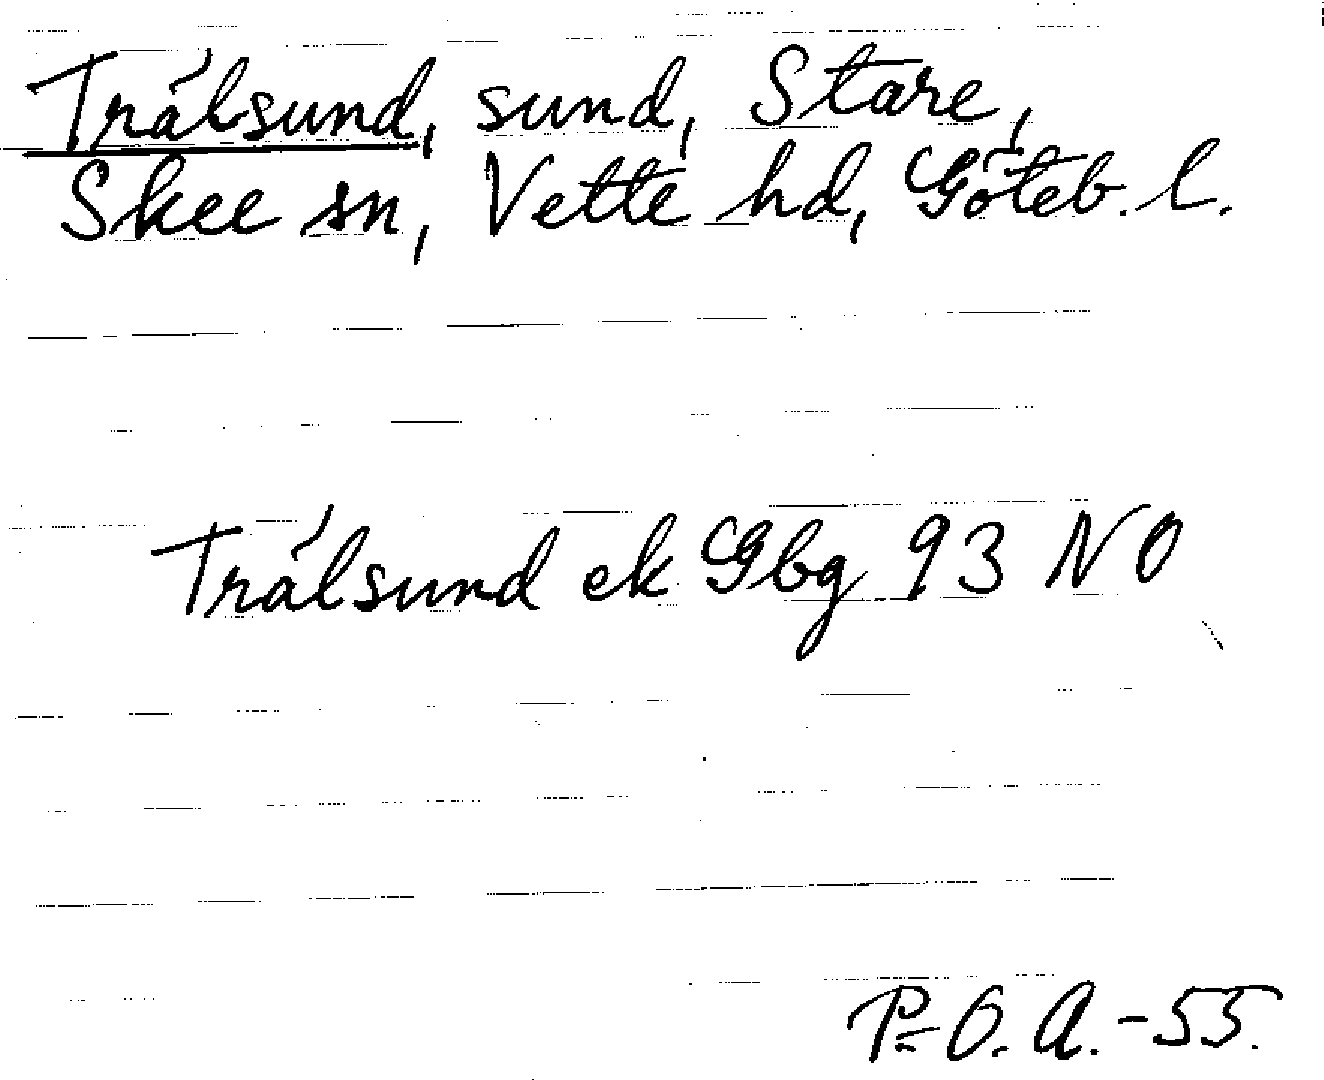 Trålsund, sund, Stare,
Skee sn, Vette hd, Göteb. l.
Trålsund ek Gbg 93 NO
P-O. A.-55.